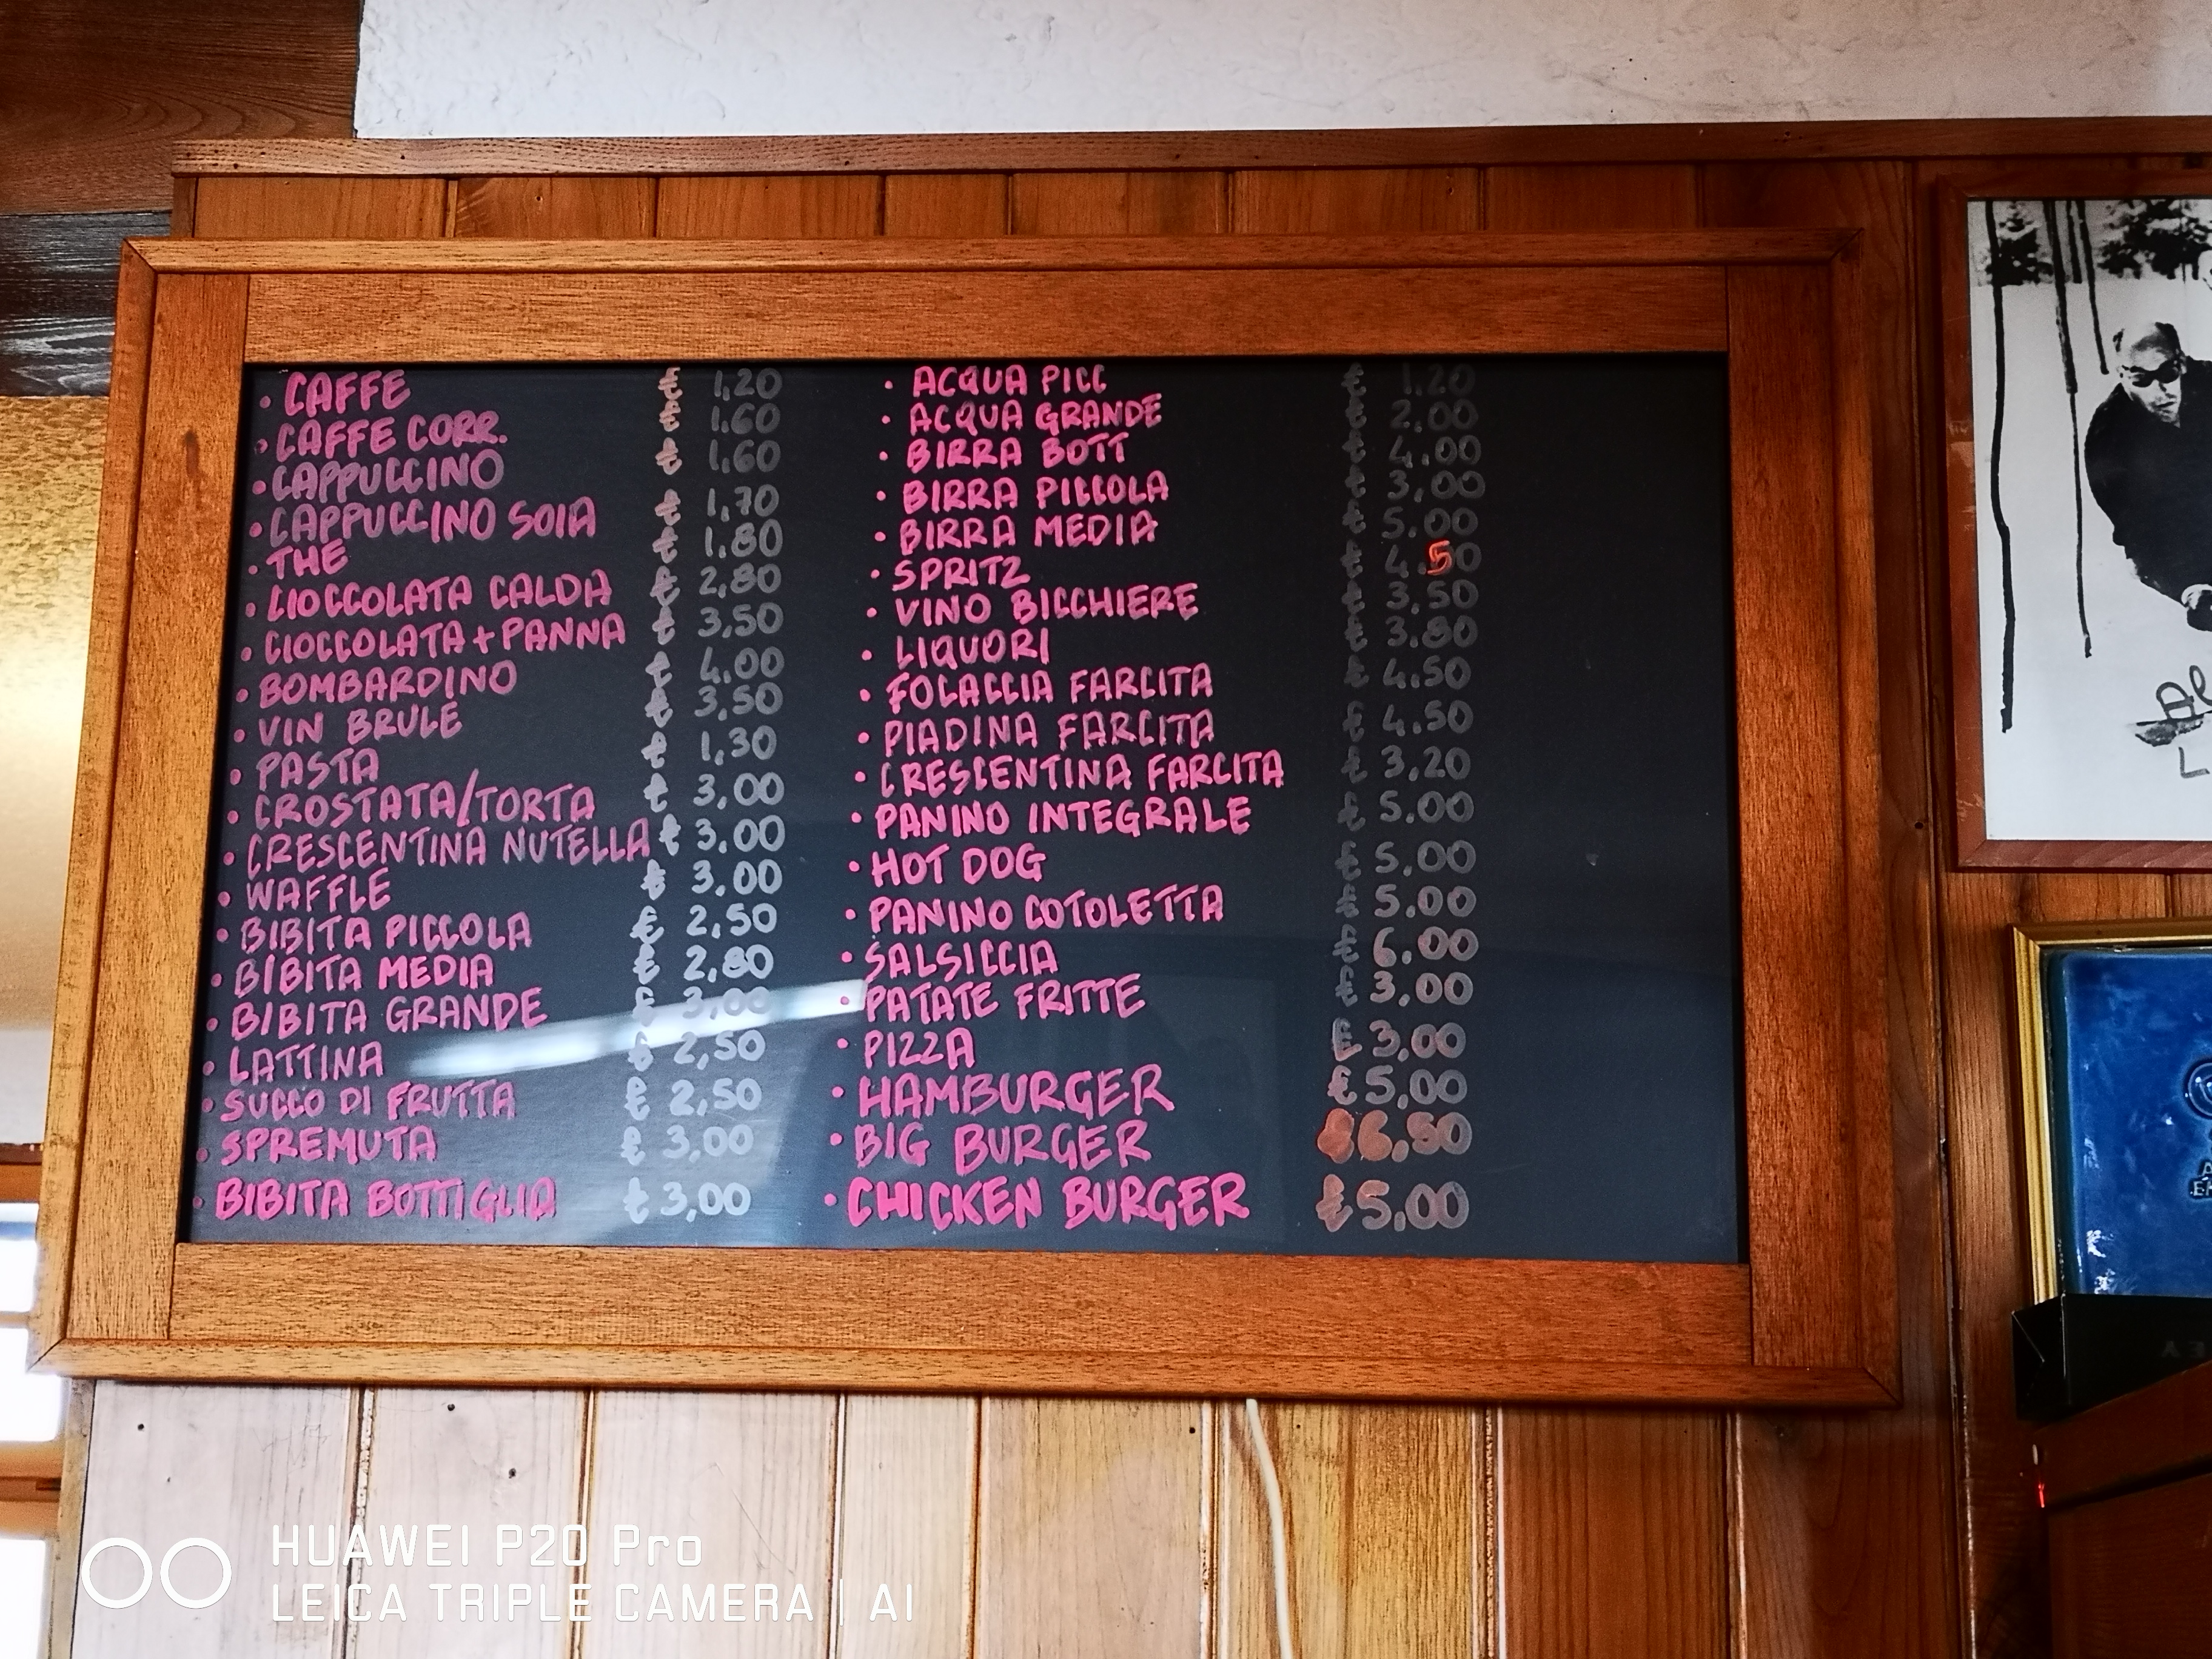 • CAFFE € 1,20
• CAFFE CORR. € 1,60
• CAPPUCCINO € 1,60
• CAPPUCCINO SOIA € 1,70
• THE € 1,80
• CIOCCOLATA CALDA € 2,80
• CIOCCOLATA+PANNA € 3,50
• BOMBARDINO € 4,00
• VIN BRULE € 3,50
• PASTA € 1,30
• CROSTATA/TORTA € 3,00
• CRESCENTINA NUTELLA € 3,00
• WAFFLE € 3,00
• BIBITA PICCOLA € 2,50
• BIBITA MEDIA € 2,80
• BIBITA GRANDE € 3,00
• LATTINA € 2,50
• SUCCO DI FRUTTA € 2,50
• SPREMUTA € 3,00
• BIBITA BOTTIGLIA € 3,00
• ACQUA PICC € 1.20
• ACQUA GRANDE € 2.00
• BIRRA BOTT € 4.00
• BIRRA PICCOLA € 3,00
• BIRRA MEDIA € 5.00
• SPRITZ € 4.50
• VINO BICCHIERE € 3.50
• LIQUORI € 3.80
• FOCACCIA FARCITA € 4.50
• PIADINA FARCITA € 4.50
• CRESCENTINA FARCITA € 3,20
• PANINO INTEGRALE € 5.00
• HOT DOG € 5.00
• PANINO COTOLETTA € 5.00
• SALSICCIA € 6.00
• PATATE FRITTE € 3,00
• PIZZA € 3,00
• HAMBURGER € 5,00
• BIG BURGER € 6,50
• CHICKEN BURGER € 5,00
HUAWEI P20 Pro
LEICA TRIPLE CAMERA | AI